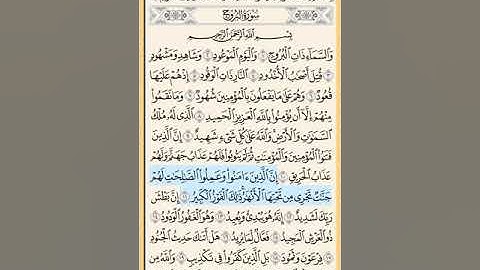 سُورَةُ الْبُرُوجِ
بِسْمِ اللَّهِ الرَّحْمَٰنِ الرَّحِيمِ
وَالسَّمَاءِ ذَاتِ الْبُرُوجِ ١ وَالْيَوْمِ الْمَوْعُودِ ٢ وَشَاهِدٍ وَمَشْهُودٍ
٣ قُتِلَ أَصْحَابُ الْأُخْدُودِ ٤ النَّارِ ذَاتِ الْوَقُودِ ٥ إِذْ هُمْ عَلَيْهَا
قُعُودٌ ٦ وَهُمْ عَلَىٰ مَا يَفْعَلُونَ بِالْمُؤْمِنِينَ شُهُودٌ ٧ وَمَا نَقَمُوا
مِنْهُمْ إِلَّا أَن يُؤْمِنُوا بِاللَّهِ الْعَزِيزِ الْحَمِيدِ ٨ الَّذِي لَهُ مُلْكُ
السَّمَاوَاتِ وَالْأَرْضِ وَاللَّهُ عَلَىٰ كُلِّ شَيْءٍ شَهِيدٌ ٩ إِنَّ الَّذِينَ
فَتَنُوا الْمُؤْمِنِينَ وَالْمُؤْمِنَاتِ ثُمَّ لَمْ يَتُوبُوا فَلَهُمْ عَذَابُ جَهَنَّمَ وَلَهُمْ
عَذَابُ الْحَرِيقِ ١٠ إِنَّ الَّذِينَ آمَنُوا وَعَمِلُوا الصَّالِحَاتِ لَهُمْ
جَنَّاتٌ تَجْرِي مِن تَحْتِهَا الْأَنْهَارُ ذَٰلِكَ الْفَوْزُ الْكَبِيرُ ١١ إِنَّ بَطْشَ
رَبِّكَ لَشَدِيدٌ ١٢ إِنَّهُ هُوَ يُبْدِئُ وَيُعِيدُ ١٣ وَهُوَ الْغَفُورُ الْوَدُودُ ١٤
ذُو الْعَرْشِ الْمَجِيدُ ١٥ فَعَّالٌ لِّمَا يُرِيدُ ١٦ هَلْ أَتَاكَ حَدِيثُ الْجُنُودِ
١٧ فِرْعَوْنَ وَثَمُودَ ١٨ بَلِ الَّذِينَ كَفَرُوا فِي تَكْذِيبٍ ١٩ وَاللَّهُ مِن